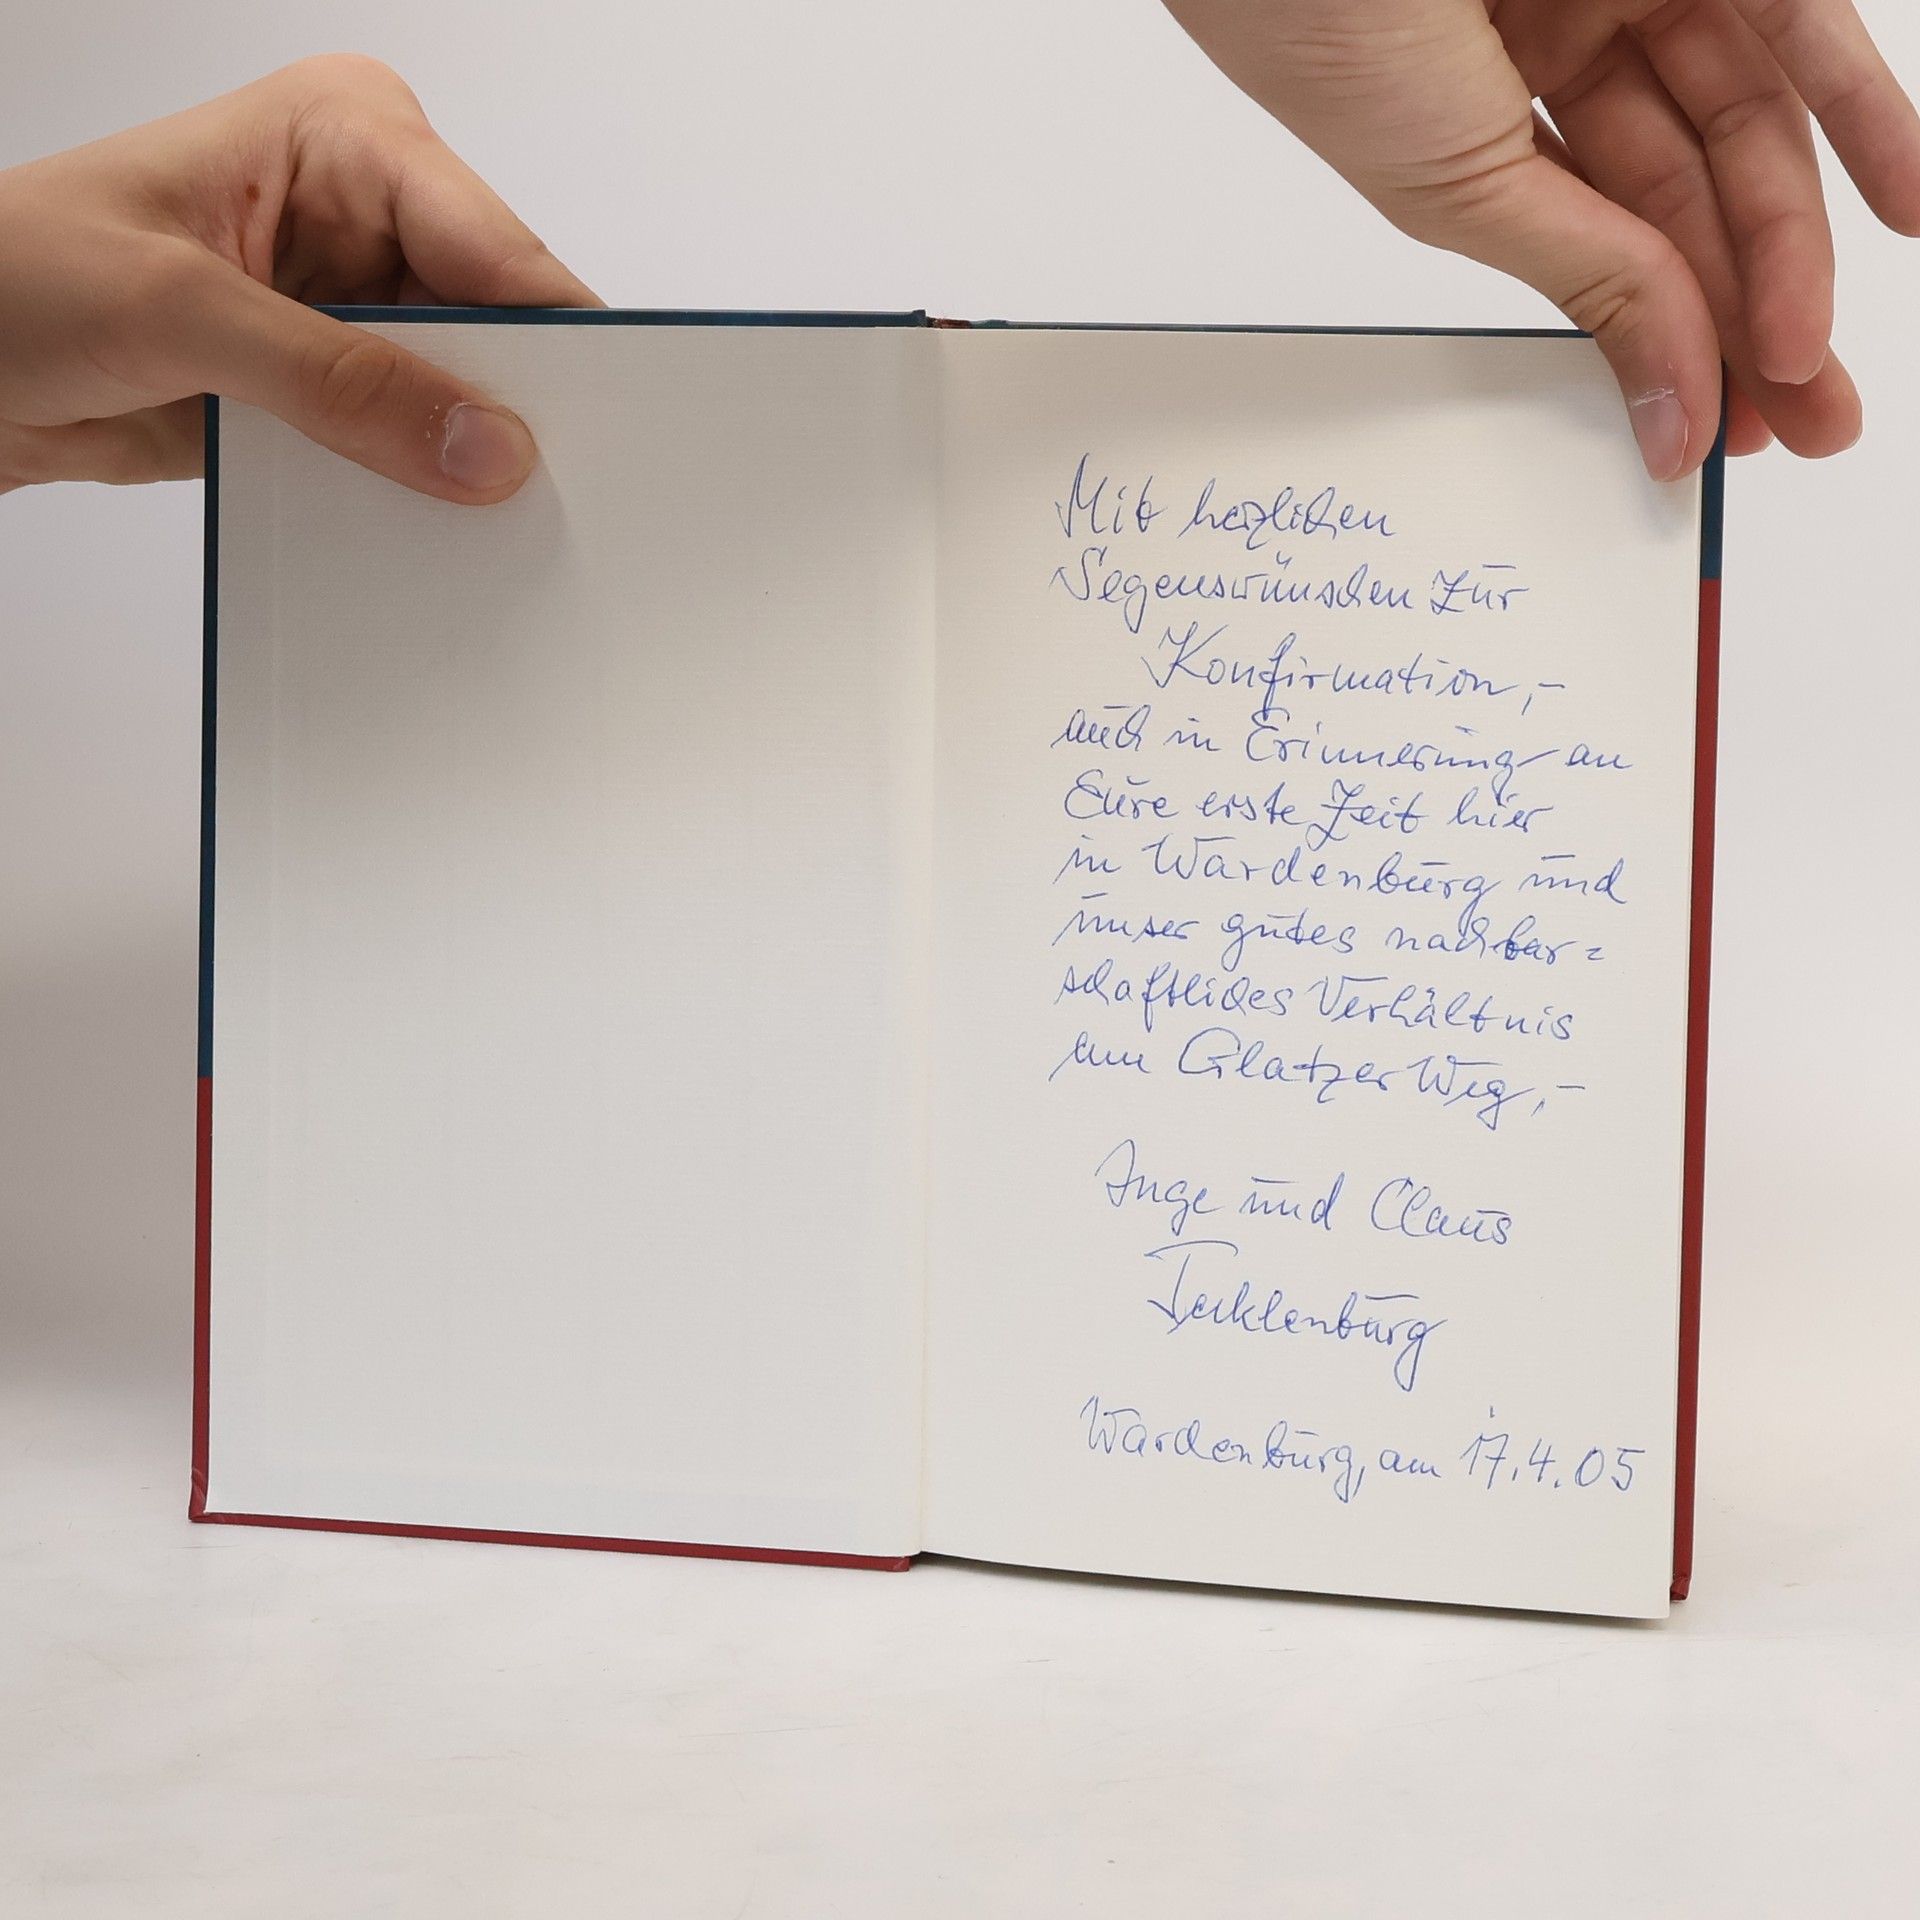 Mit herzlichen
Segenswünschen zur
Konfirmation,-
auch in Erinnerung an
Eure erste Zeit hier
in Wardenburg und
unser gutes nachbar=
schaftliches Verhältnis
am Glatzer Weg,-
Inge und Claus
Tecklenburg
Wardenburg, am 17.4.05